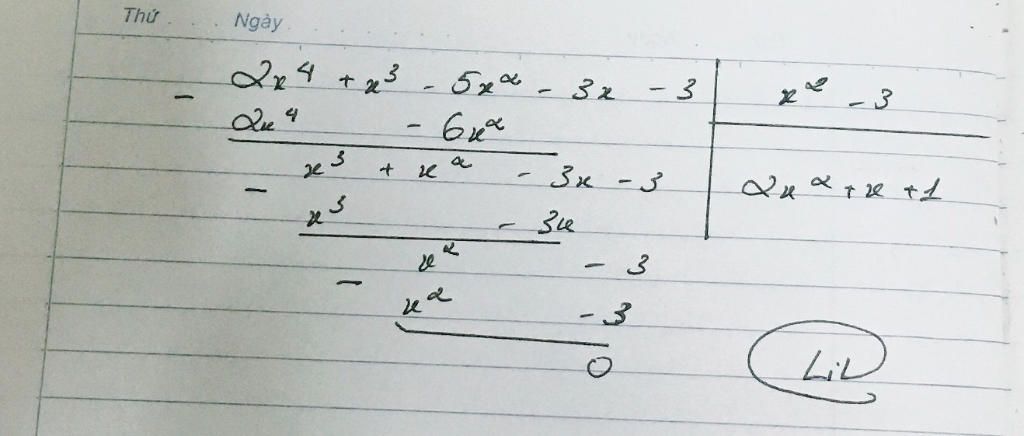 Thứ .... Ngày ..........
2x⁴ + x³ - 5x² - 3x - 3 | x² - 3
-
2x⁴ - 6x²
x³ + x² - 3x - 3 | 2x² + x + 1
-
x³ - 3x
x² - 3
-
x² - 3
0
LiL